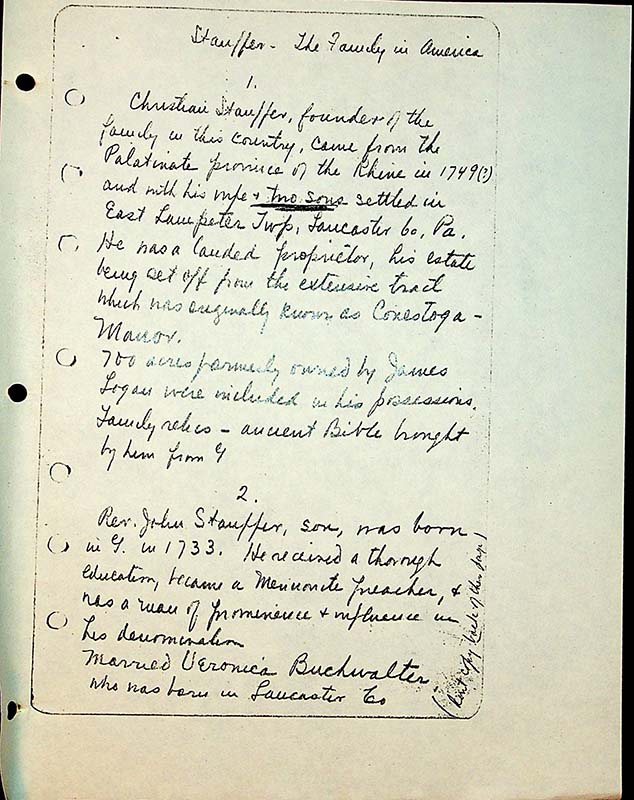 Stauffer - The Family in America
1.
Christian Stauffer, founder of the
family in this country, came from the
Palatinate province of the Rhine in 1749(?)
and with his wife + two sons settled in
East Lampeter Twp, Lancaster Co, Pa.
He was a landed proprietor, his estate
being set off from the extensive tract
which was originally known as Conestoga -
Manor.
700 acres formerly owned by James
Logan were included in his possessions.
Family relics - ancient Bible brought
by him from G
2.
Rev. John Stauffer, son, was born
in G. in 1733. He received a thorough
education, became a Mennonite preacher, +
was a man of prominence + influence in
his denomination
Married Veronica Buchwalter
who was born in Lancaster Co
copy back of this page